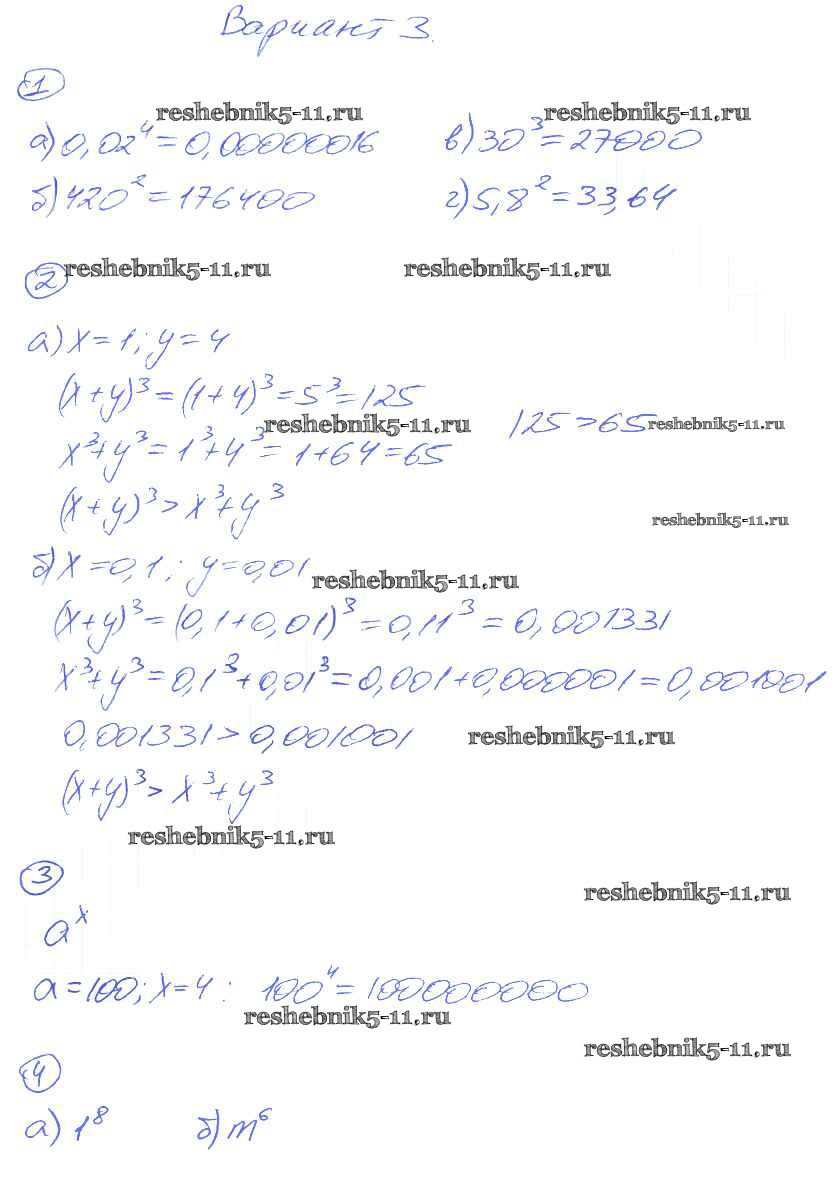 Вариант 3.
1
reshebnik5-11.ru reshebnik5-11.ru
а) 0,02⁴ = 0,00000016 в) 30³ = 27000
б) 420² = 176400 г) 5,8² = 33,64
2 reshebnik5-11.ru reshebnik5-11.ru
а) x = 1; y = 4
(x+y)³ = (1+4)³ = 5³ = 125
reshebnik5-11.ru 125 > 65 reshebnik5-11.ru
x³+y³ = 1³+4³ = 1+64 = 65
(x+y)³ > x³+y³
reshebnik5-11.ru
б) x = 0,1; y = 0,01
reshebnik5-11.ru
(x+y)³ = (0,1+0,01)³ = 0,11³ = 0,001331
x³+y³ = 0,1³+0,01³ = 0,001+0,000001 = 0,001001
0,001331 > 0,001001 reshebnik5-11.ru
(x+y)³ > x³+y³
reshebnik5-11.ru
3
reshebnik5-11.ru
aˣ
a = 100; x = 4 : 100⁴ = 100000000
reshebnik5-11.ru
reshebnik5-11.ru
4
а) 1⁸ б) m⁶